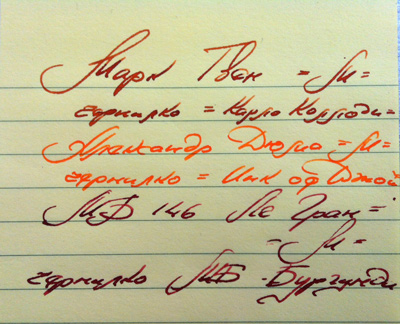 Марк Твен = М =
чернилко = Карло Колоди =
Александр Дюма = М =
чернилко = Инк оф Джой
МБ 146 Ле Гран =
= М =
чернилко МБ - Бургунди